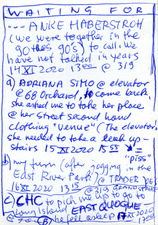 WAITING FOR
... ANKE HABERSTROH
(we were together in the
90ties 90's) to call, we
have not talked in years
14 XI 2020 1325 @ 319
a) ADRIANA SIMO @ elevator
@ 68 Orchard, to come back,
she asked me to take her place
@ her street second hand
clothing "venue" (The elevator,
she needed to take a leak up-
stairs 15 XI 2020 1555 "piss"
b) my turn (after jogging in the
East River Park) @ TRADER JOE
16 XI 2020 1315 @
c) CHC to pick me up to go to
Long Island EAST QUOGUE
@ he fell asleep